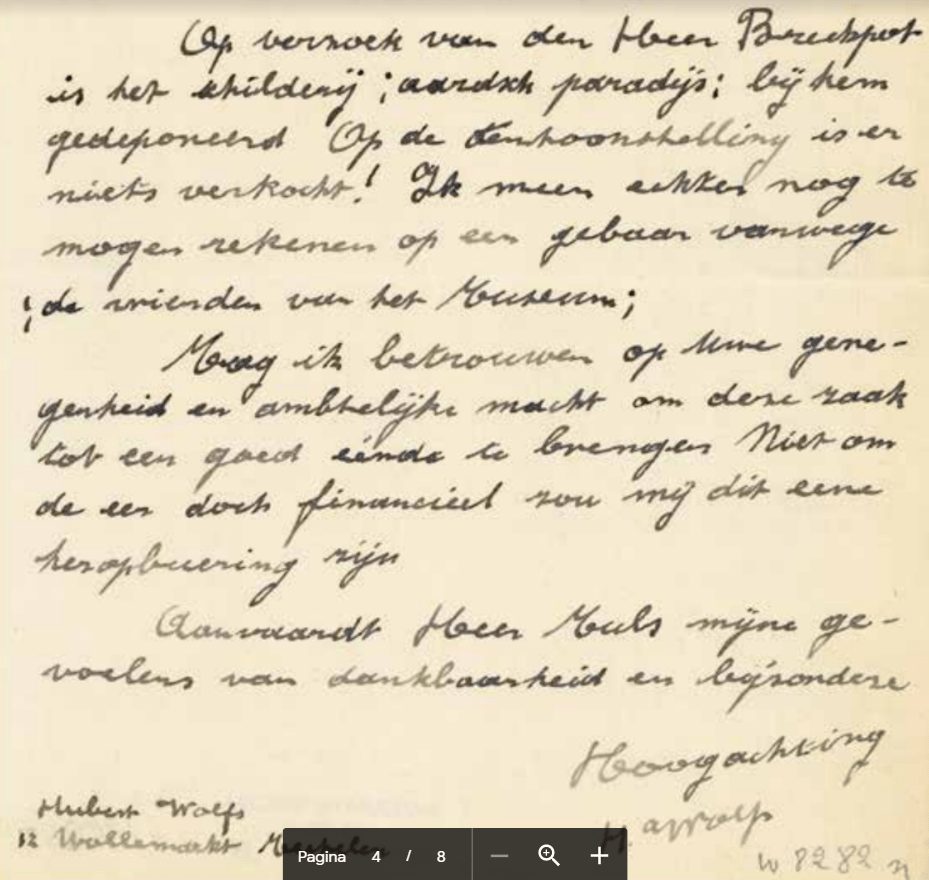 Op verzoek van den Heer Breckpot
is het schilderij ; aardsch paradijs ; bij hem
gedeponeerd Op de tentoonstelling is er
niets verkocht ! Ik meen echter nog te
mogen rekenen op een gebaar vanwege
; de vrienden van het Museum ;
Mag ik betrouwen op Uwe gene-
genheid en ambtelijke macht om deze zaak
tot een goed einde te brengen Niet om
de eer doch financieel zou mij dit eene
heropbeuring zijn
Aanvaardt Heer Muls mijne ge-
voelens van dankbaarheid en bijzondere
Hoogachting
Hubert Wolfs
H. Wolfs
12 Wollemarkt Mechelen
Pagina 4 / 8
W 8282